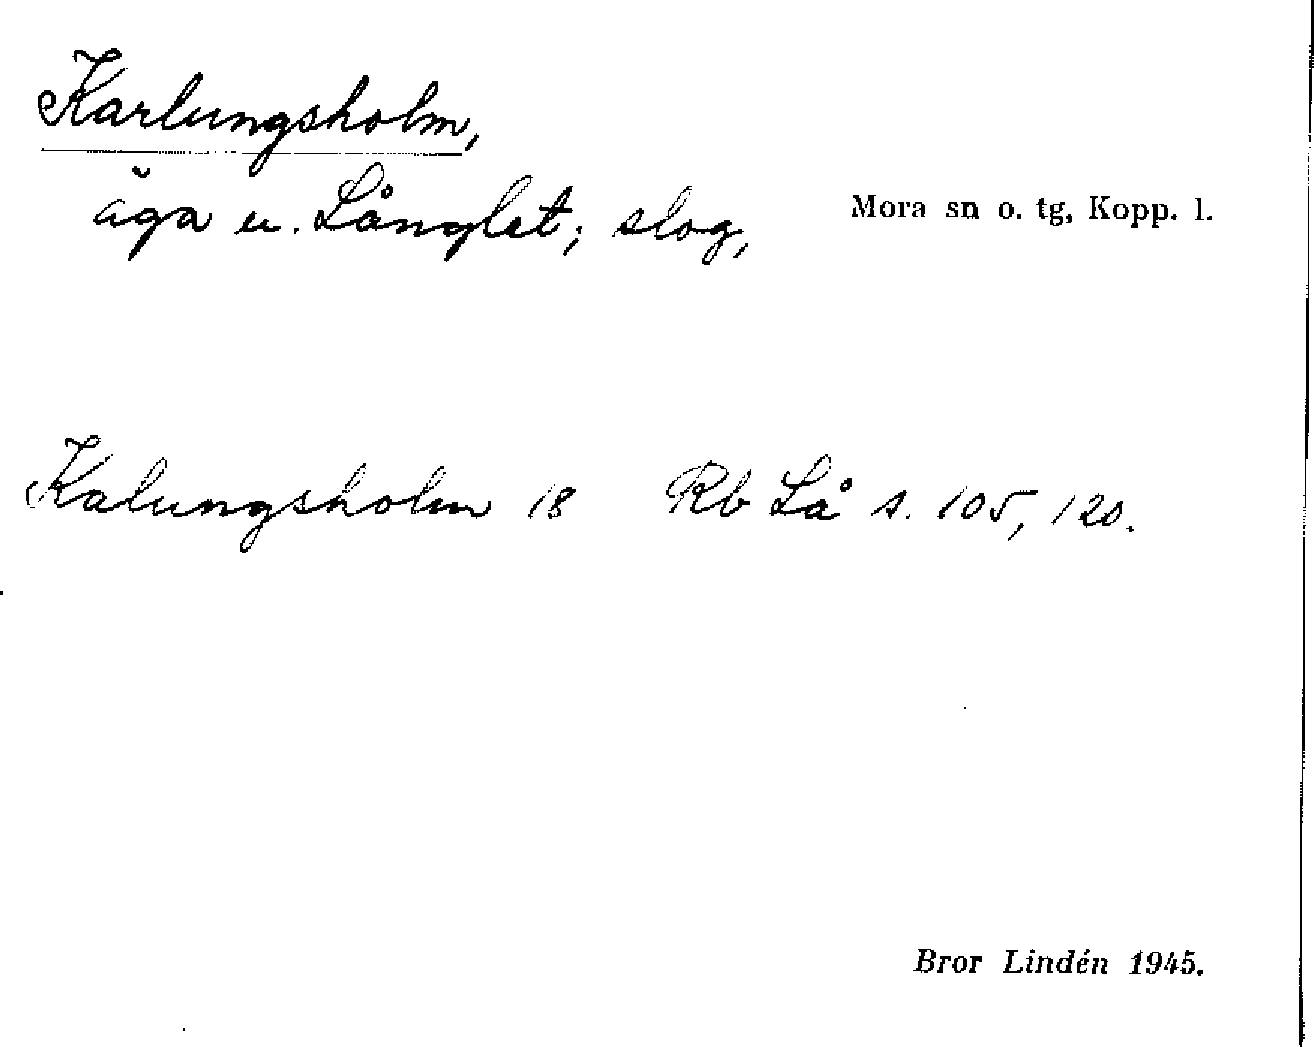 Karlungsholm,
äga u. Långlet; slog,
Mora sn o. tg, Kopp. l.
Kalungsholm 18 Rb Lå s. 105, 120.
Bror Lindén 1945.